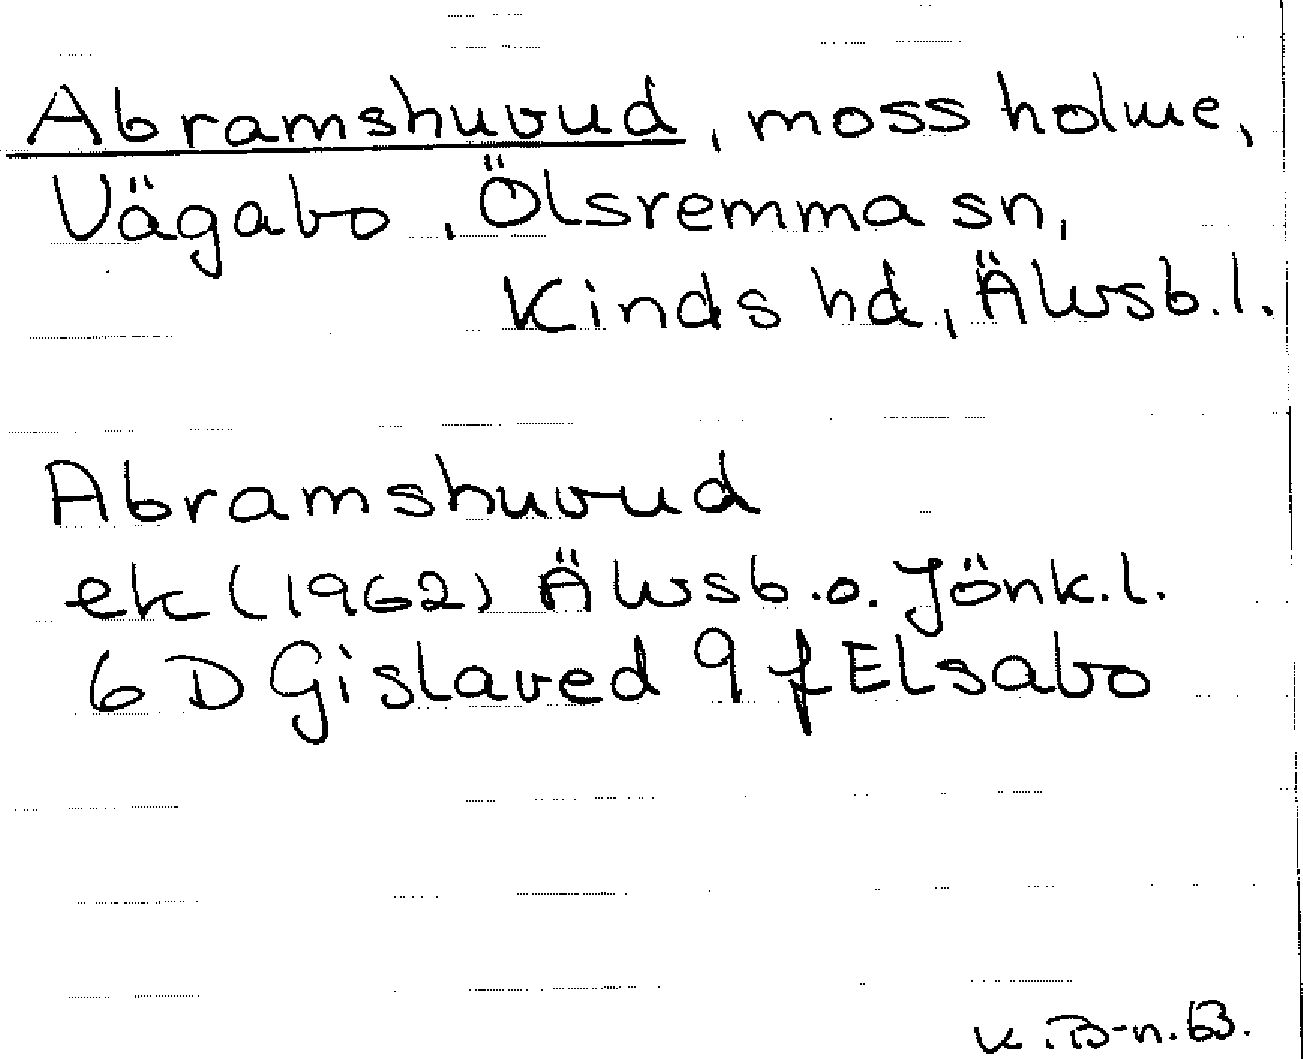 Abramshuvud, mossholme,
Vägabo, Ölsremma sn,
Kinds hd, Älvsb.l.
Abramshuvud
ek (1962) Älvsb.o. Jönk.l.
6 D Gislaved 9 f Elsabo
K.B-n.63.